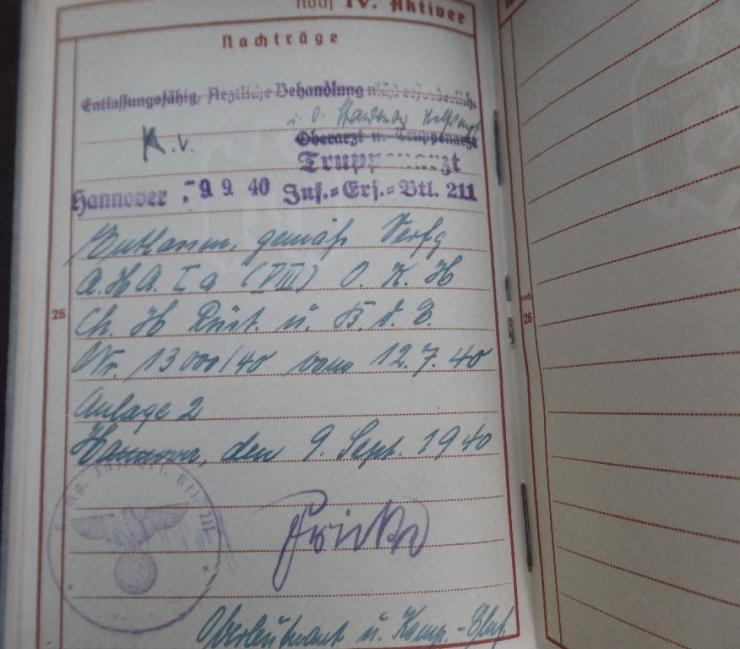 Noch IV. Aktiver
Nachträge
Entlassungsfähig, Ärztliche Behandlung nicht erforderlich.
K.v. i. O.
Oberarzt u. Truppenarzt
Truppenarzt
Hannover, - 9. 9. 40 Inf.=Ers.=Btl. 211
Entlassen, gemäß Verfg
A.H.A. I a (VIII) O. K. H
26 Ch. H Rüst. u. B. d. E. 26
Nr. 13000/40 vom 12.7.40
Anlage 2
Hannover, den 9. Sept. 1940
Oberleutnant u. Komp.-Chef